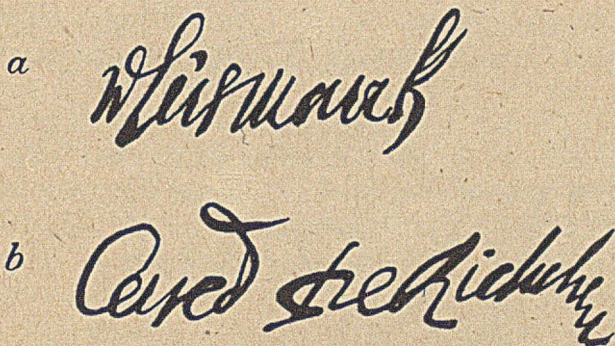 a vBismarck
b Card de Richelieu